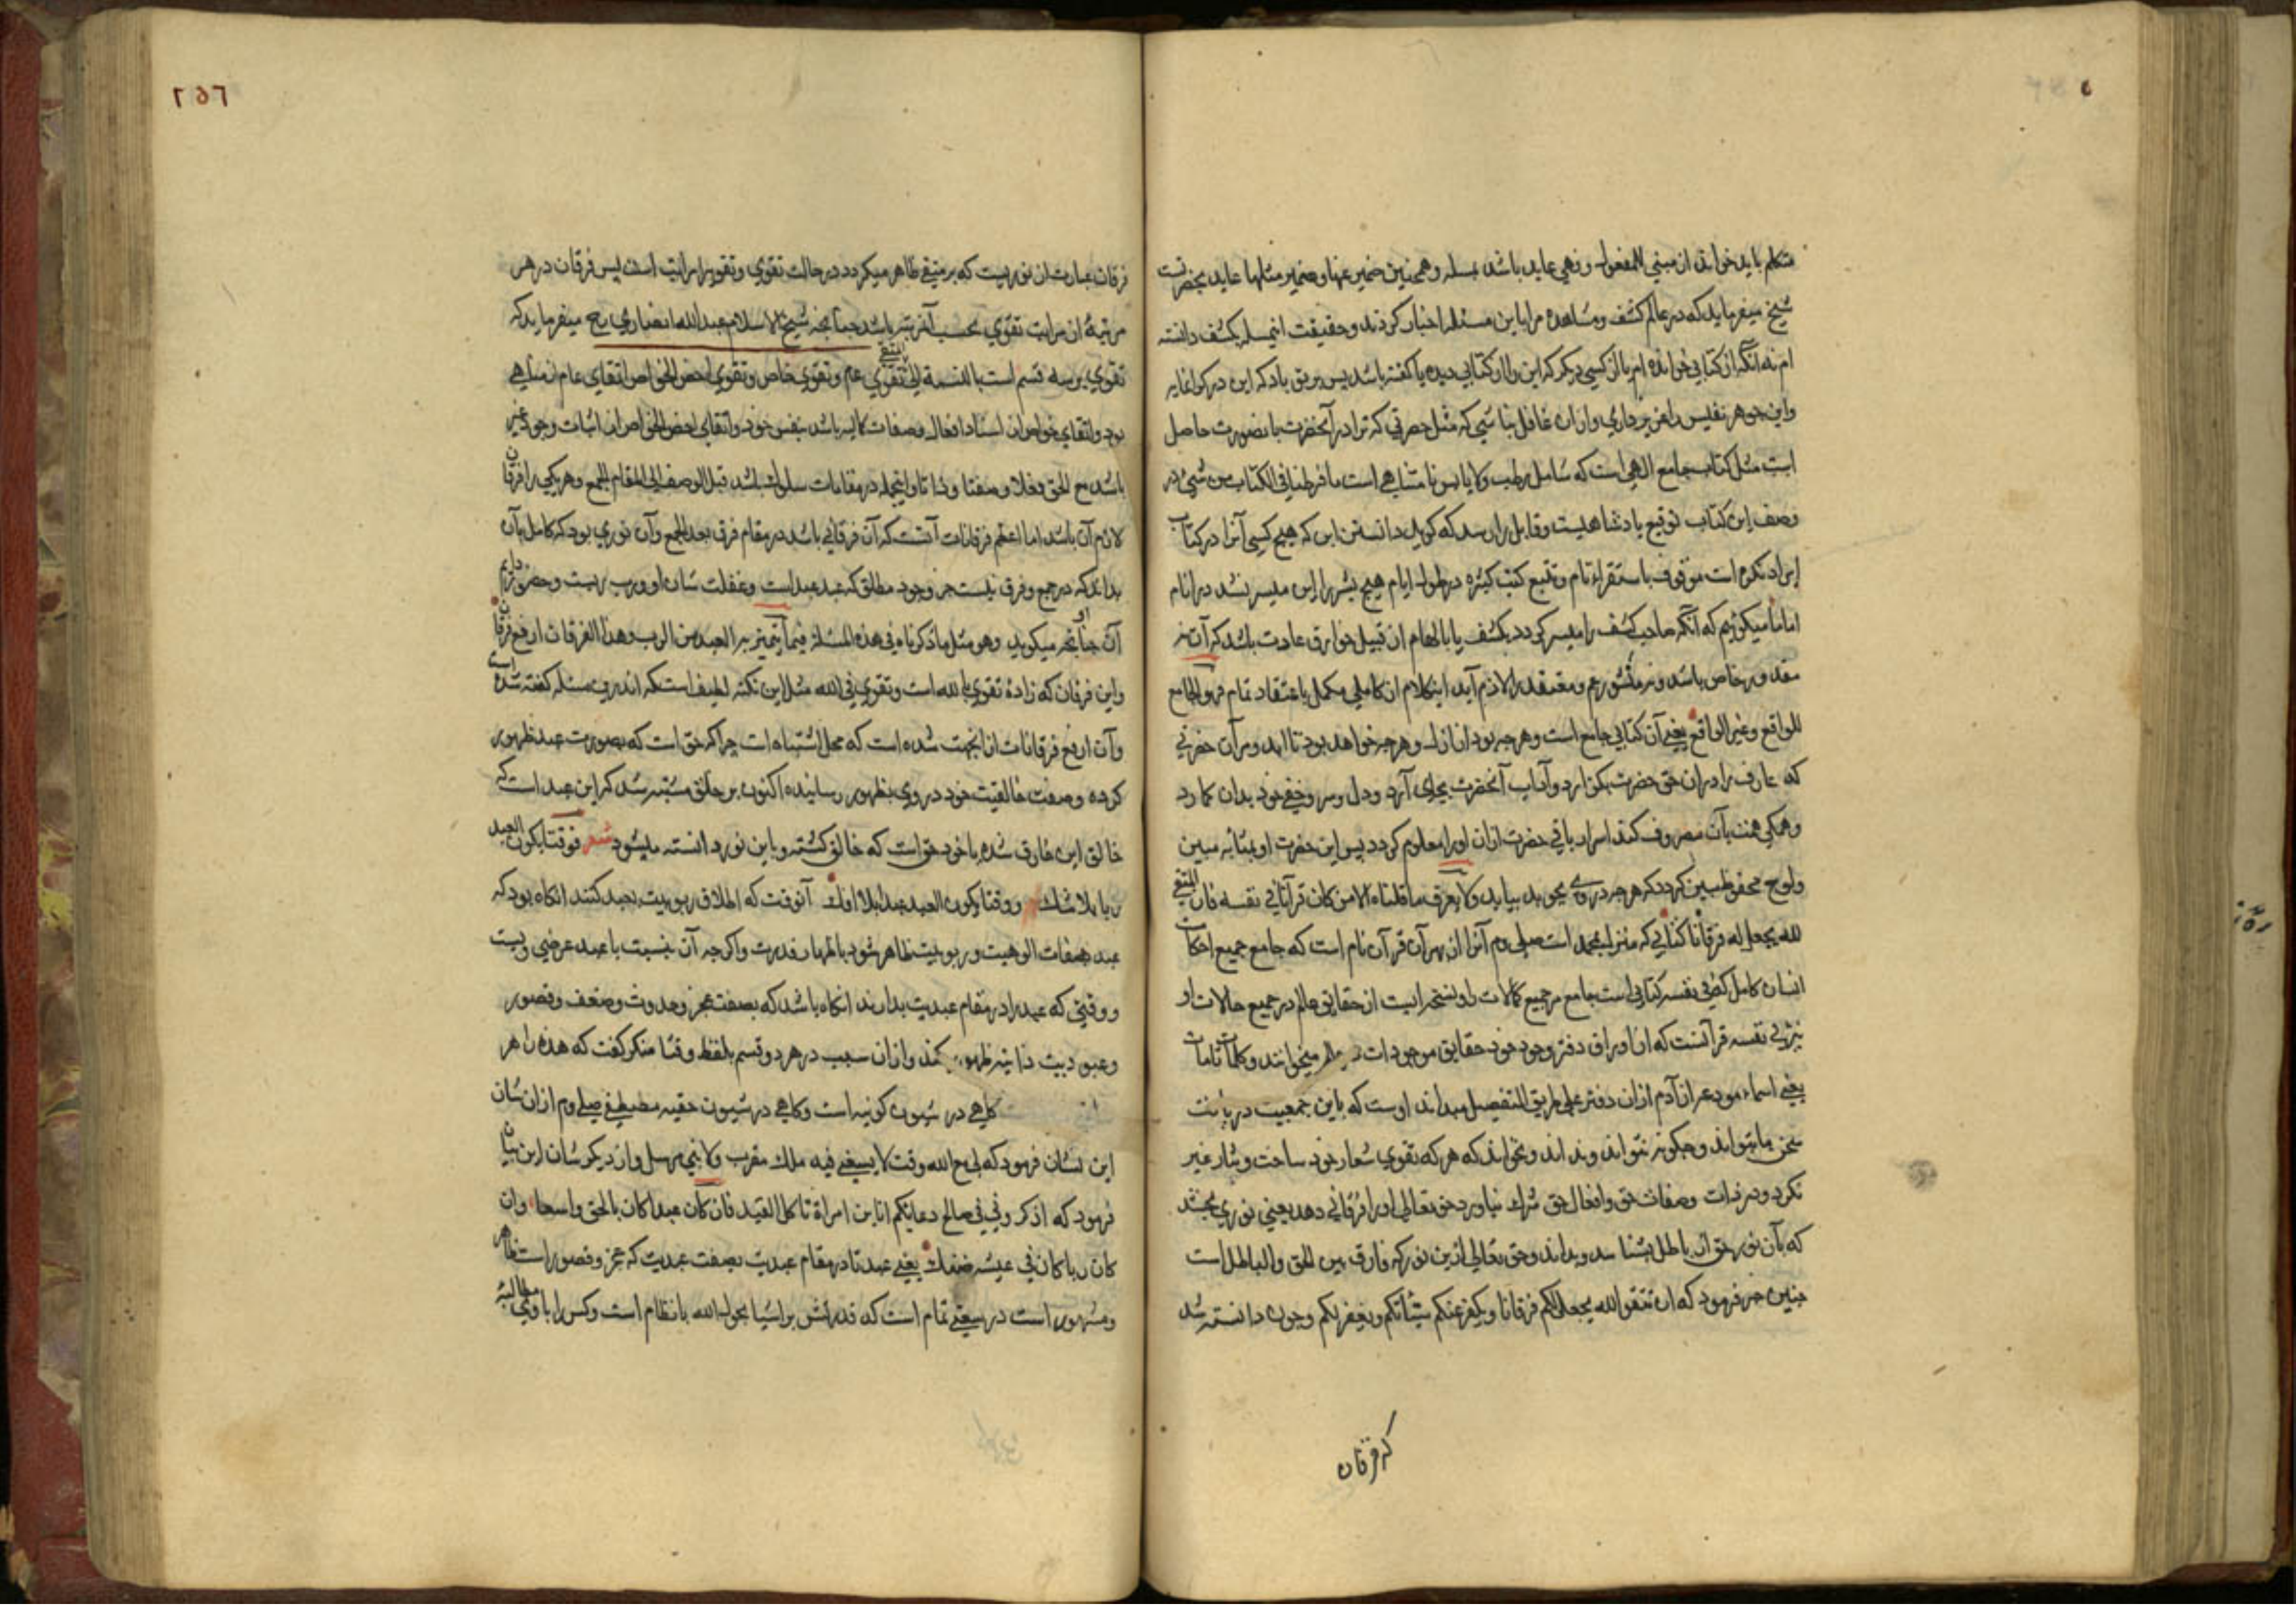 متکلم باید خواندن از مبنی للمفعول وهی عاید باشد بمسله وهمچنین ضمیر عنها وضمیر مثلها عاید بحضرتست
شیخ میفرماید که در عالم کشف ومشاهده مرا باین مسئله اخبار کردند وحقیقت اینمسله بکشف دانسته
ام نه آنکه از کتابی خوانده ام یا از کسی دیگر که این را از کتابی دیده یا گفته باشد پس بر تو باد که این در گرانمایه
واین جوهر نفیس را عزیز داری وازان غافل نباشی که مثل حضرتی که ترا در آنحضرت با نصورت حاصل
است مثل کتاب جامع الهی است که شامل رطب ولا یابس نامتناهی است ما فرطنا فی الکتاب من شیء در
وصف این کتاب توقیع پادشاهیست وقابل را رسد که گوید دانستن این که هیچ کسی آنرا در کتاب
ایراد نکرده است موقوف باستقراء تام وتتبع کتب کثیره در طول ایام هیچ بشر را این میسر نشد در انام
اما ما میگوئیم که آنکه صاحب کشف را میسر گردد بکشف یا بالهام از قبیل خوارق عادت باشد که آن نه
مقدور خاص باشد ومعتقد را لازم آید اینکلام از کاملی مکمل باعتقاد تمام فهو الجامع
للواقع وغیر الواقع یعنی آن کتابی جامع است وهر چه بود از ازل وهر چه خواهد بود تا ابد ومر آن حضرتی
که عارف را در ان حق حضرت بگزارد وآداب آنحضرت بجای آرد ودل وسر وخفی خود بدان کمارد
وهمگی همت بآن مصروف کند اسرار باقی حضرت ازان او را معلوم گردد پس این حضرت او بمثابه مبین
ولوح محفوظ مبین گردد که هر چه در وی بجوید بیابد ولا یعرف ما قلناه الا من کان قرآنا فی نفسه فان المتقی
لله یجعل له فرقانا کتابی که منزل بمحمد است صلی وم آنرا از بهر آن قرآن نام است که جامع جمیع احکامات
انسان کامل که فی نفسه کتابی است جامع مر جمیع کمالات را ونسخه ایست از حقایق عالم در جمیع حالات او
نیز فی نفسه قرآنست که او اوراق دفتر وجود خود حقایق موجودات عالم میخوانند وکلمات تامات
یعنی اسماء مودعه از آدم ازان دفتر علی طریق التفصیل میداند اوست که باین جمعیت دریافت
سخن ما تواند وچگونه نتواند ونداند ونخواند که هر که تقوی شعار خود ساخت وشار غیر
نکرد ودر ذات وصفات حق وافعال حق شرک نیاورد حق تعالی او را فرقانی دهد یعنی نوری بخشد
که بآن نور حق از باطل بشناسد وبداند وحق تعالی ازین نور که فارق بین الحق والباطل است
چنین خبر فرمود که ان تتقوا الله یجعل لکم فرقانا ویکفر عنکم سیئاتکم ویغفر لکم وچون دانسته شد
که فرقان
٢٥٦
فرقان عبارت از نوریست که بر متقی ظاهر میگردد در حالت تقوی وتقوی را مراتب است پس فرقان در هر
مرتبهٔ از مراتب تقوی بحسب آنمرتبه باشد چنانچه شیخ الاسلام عبدالله انصاری رح میفرماید که
تقوی بر سه قسم است بالنسبة الی المتقی تقوی عام وتقوی خاص وتقوی اخص الخواص اتقای عام از مناهی
بود واتقای خواص از اسناد افعال وصفات کمالیه باشد بنفس خود واتقای اخص الخواص از اثبات وجود غیر
باشد مع الحق فعلا وصفتا وذاتا واینجمله در مقامات سلوک باشد قبل الوصف الی المقام الجمع وهر یکی را فرقان
لازم آن باشد اما اعظم فرقانات آنست که آن فرقانی باشد در مقام فرق بعد الجمع وآن نوری بود که کامل بآن
بداند که در جمع وفرق نیست جز وجود مطلق که عبد عبد است وغفلت شان او ورب ربست وحضور دایم
آن چنانچه میگوید وهو مثل ما ذکرناه فی هذه المسئلة فیما یتمیز به العبد من الرب وهذا الفرقان ارفع فرقان
واین فرقان که زادهٔ تقوی بالله است وتقوی فی الله مثل این نکته لطیف است که اندرین مسئله گفته شده است
وآن ارفع فرقانات از انجهت شده است که محل اشتباه است چرا که حق است که بصورت عبد ظهور
کرده وصفت خالقیت خود در وی بظهور رسانیده اکنون بر خلق مشتبه شد که این عبد است که
خالق این خارق شده یا خود حق است که خالق گشته وباین نور دانسته میشود شعر فوقتا یکون العبد
ربا بلا شک ووقتا یکون العبد عبدا بلا افک آنوقت که اطلاق ربوبیت بعبد کنند انگاه بود که
عبد بصفات الوهیت وربوبیت ظاهر شود باظهار قدرت واگرچه آن نسبت با عبد عرضی وبیست
ووقتی که عبد را در مقام عبدیت بدارند انگاه باشد که بصفت عجز وحدوث وضعف وقصور
وعبودیت ذاتیه ظهور کند وازان سبب در هر دو قسم بلفظ وقتا منکر گفت که هده را هر
گاهی در شیون کونیه است وگاهی در شیون حقیه مصطفی صلی وم ازان شان
این نشان فرمود که لی مع الله وقت لا یسعنی فیه ملک مقرب ولا نبی مرسل واز دیگر شان این بیان
فرمود که اذکرونی فی صالح دعائکم انا بن امراة تاکل القدید فان کان عبدا کان بالحق واسعا وان
کان ربا کان فی عیشه ضنک یعنی عبد تا در مقام عبدیت بصفت عبدیت که عجز وقصور است ظاهر
ومشهور است در سعتی تمام است که قدرتش بر اشیا بحول الله بانظام است وکس را با وی مطالبهٔ